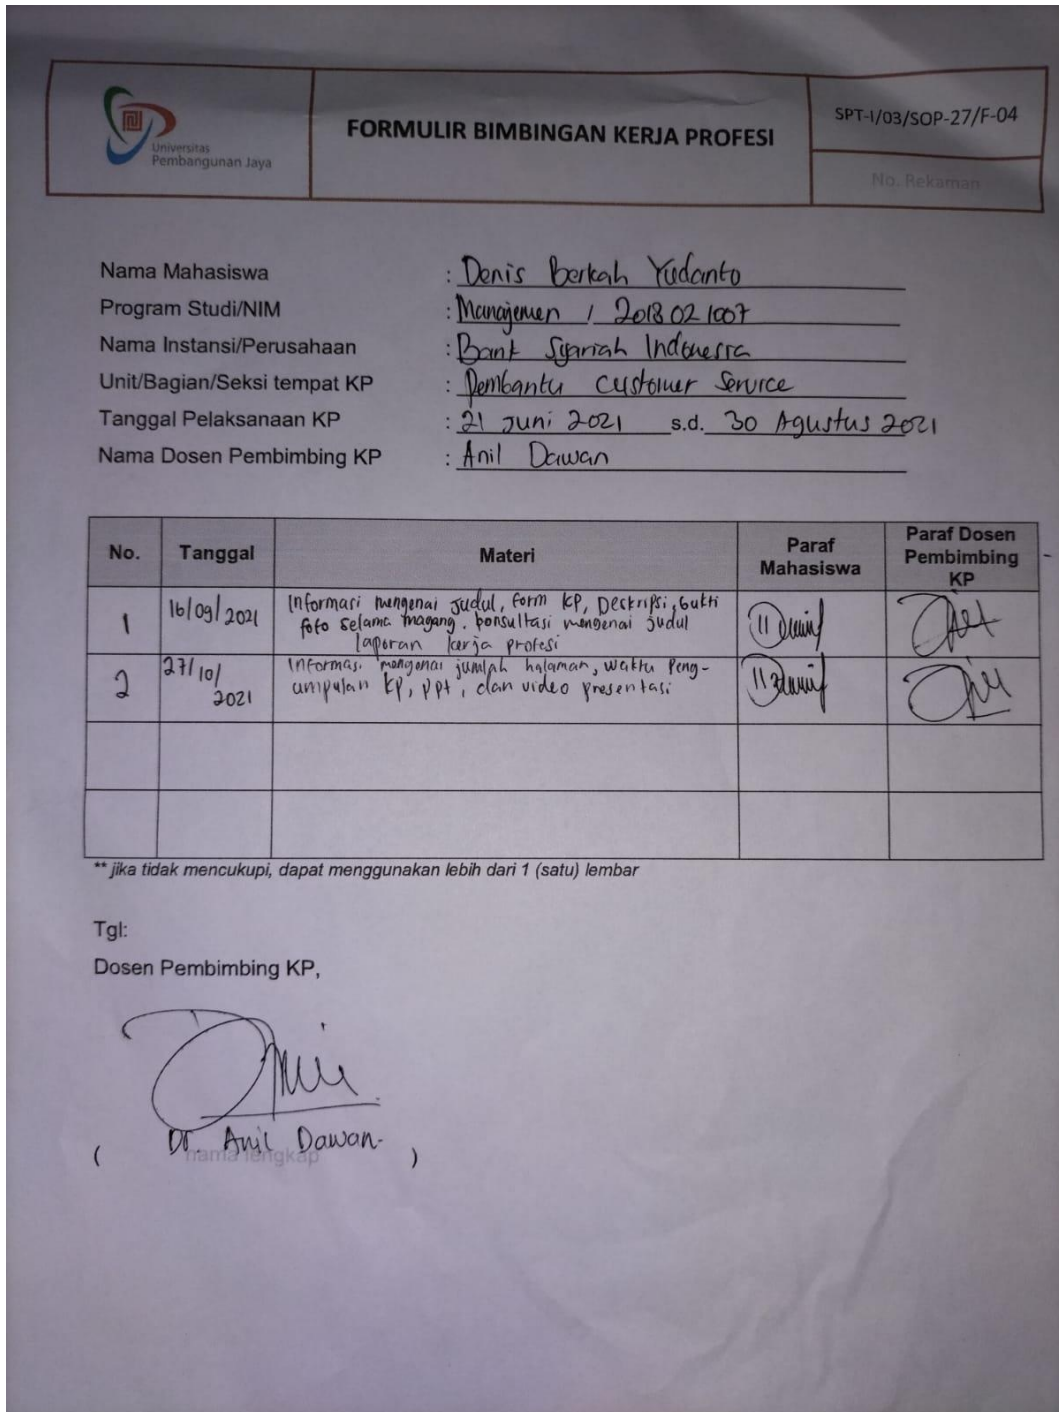 Universitas
Pembangunan Jaya
FORMULIR BIMBINGAN KERJA PROFESI
SPT-I/03/SOP-27/F-04
No. Rekaman
Nama Mahasiswa : Denis Berkah Yudanto
Program Studi/NIM : Manajemen / 2018021007
Nama Instansi/Perusahaan : Bank Syariah Indonesia
Unit/Bagian/Seksi tempat KP : Pembantu Customer Service
Tanggal Pelaksanaan KP : 21 Juni 2021 s.d. 30 Agustus 2021
Nama Dosen Pembimbing KP : Anil Dawan
No. Tanggal Materi Paraf Mahasiswa Paraf Dosen Pembimbing KP
1 16/09/2021 Informasi mengenai judul, form KP, Deskripsi, bukti
foto selama magang. konsultasi mengenai judul
laporan kerja profesi
2 27/10/2021 Informasi mengenai jumlah halaman, waktu Peng-
umpulan KP, ppt, dan video presentasi
** jika tidak mencukupi, dapat menggunakan lebih dari 1 (satu) lembar
Tgl:
Dosen Pembimbing KP,
Dr. Anil Dawan
( nama lengkap )